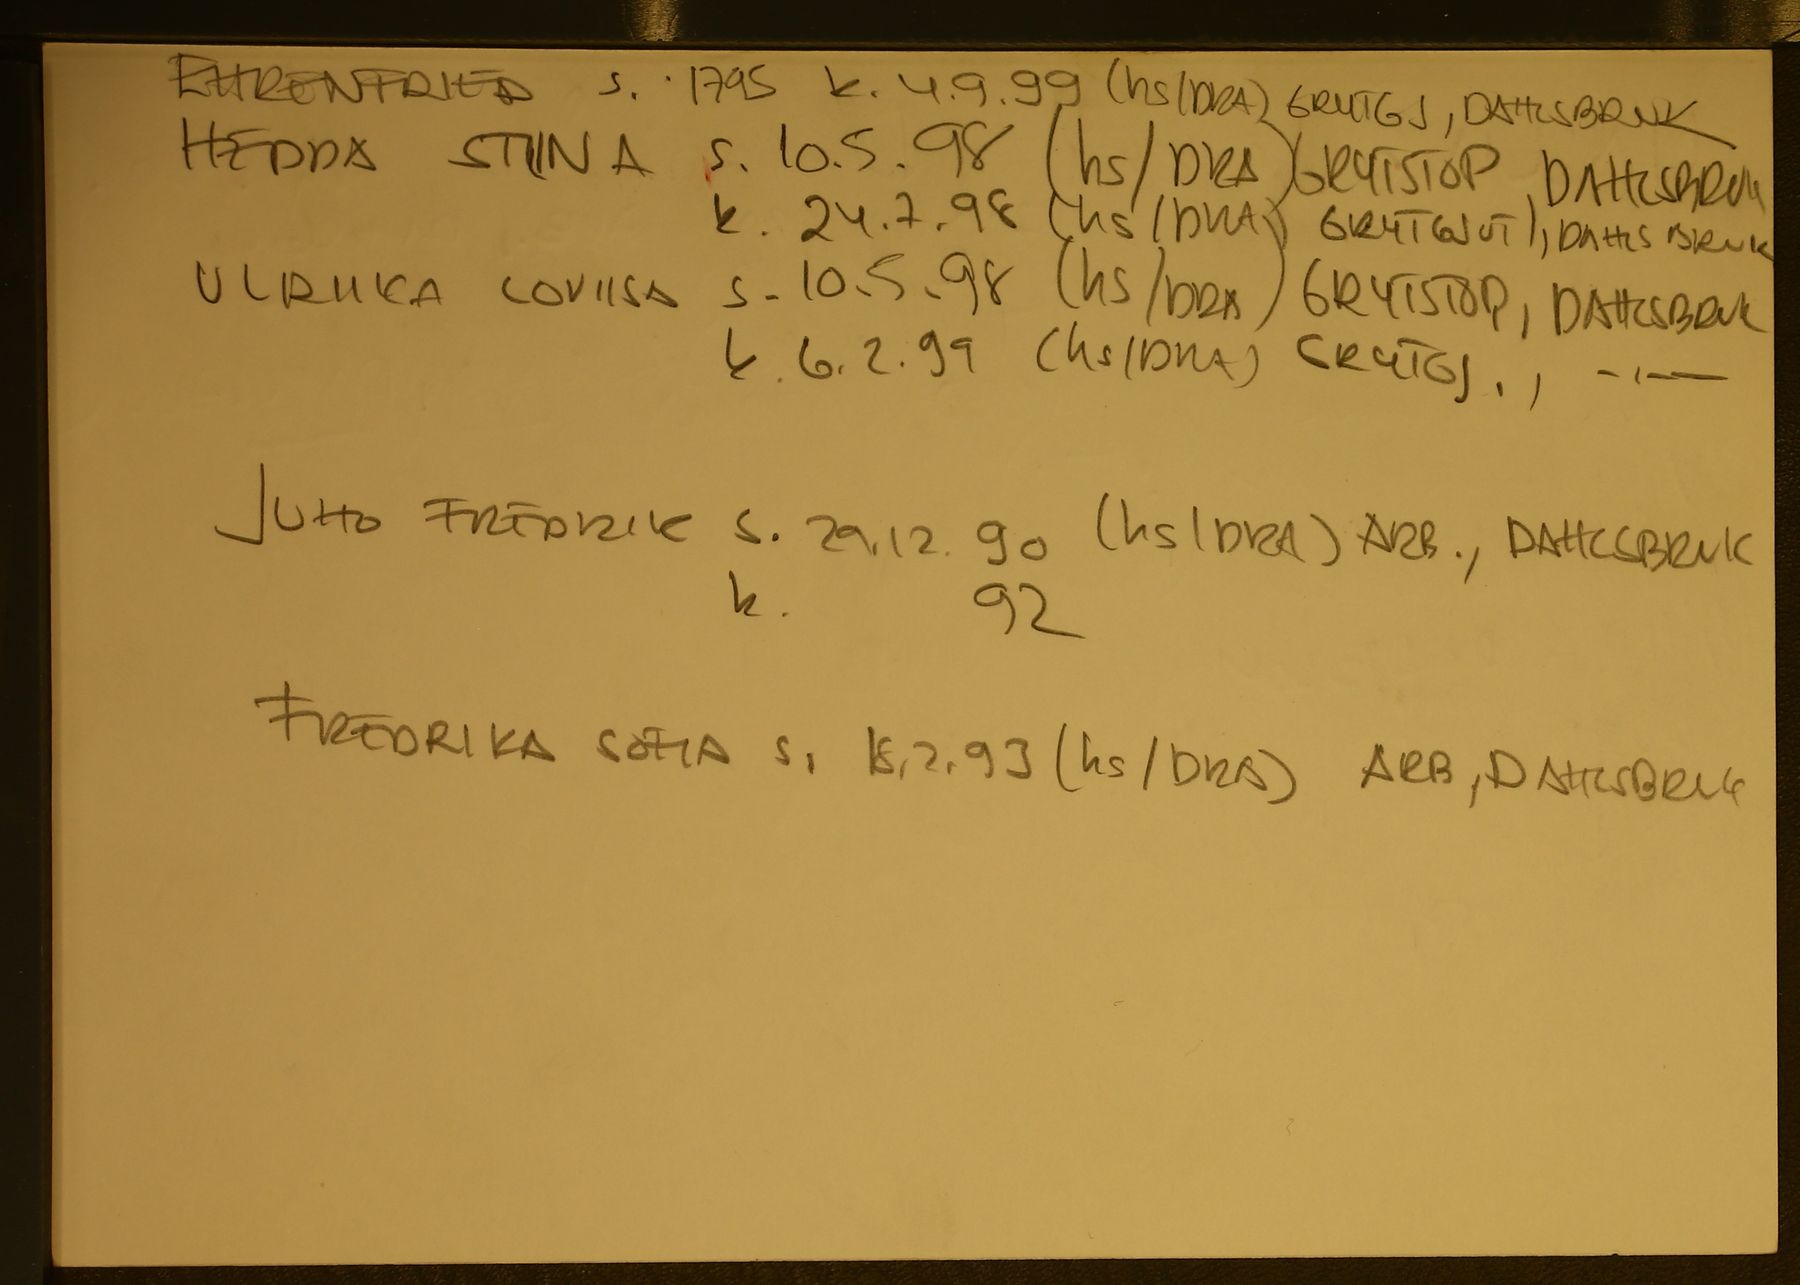 EHRENFRIED s. 1795 k. 4.9.99 (hs/DRA) GRYTGJ, DAHLSBRUK
HEDDA STIINA s. 10.5.98 (hs/DRA) GRYTSTÖP, DAHLSBRUK
k. 24.7.98 (hs/DRA) GRYTGJUT), DAHLSBRUK
ULRIIKA LOVIISA s. 10.5.98 (hs/DRA) GRYTSTÖP, DAHLSBRUK
k. 6.2.99 (hs/DRA) GRYTGJ., -ı-
JUHO FREDRIK s. 29.12.90 (hs/DRA) ARB., DAHLSBRUK
k. 92
FREDRIKA SOFIA s. 2.93 (hs/DRA) ARB, DAHLSBRUK